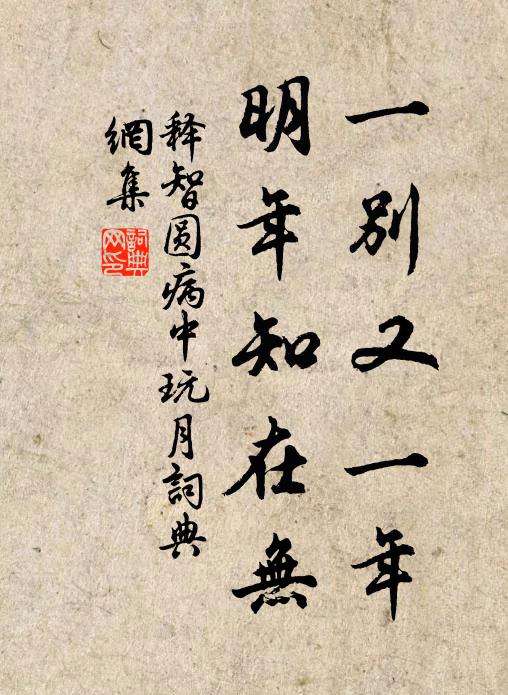 一别又一年
明年知在無
释智圆病中玩月詞典
網集
詞典
网印